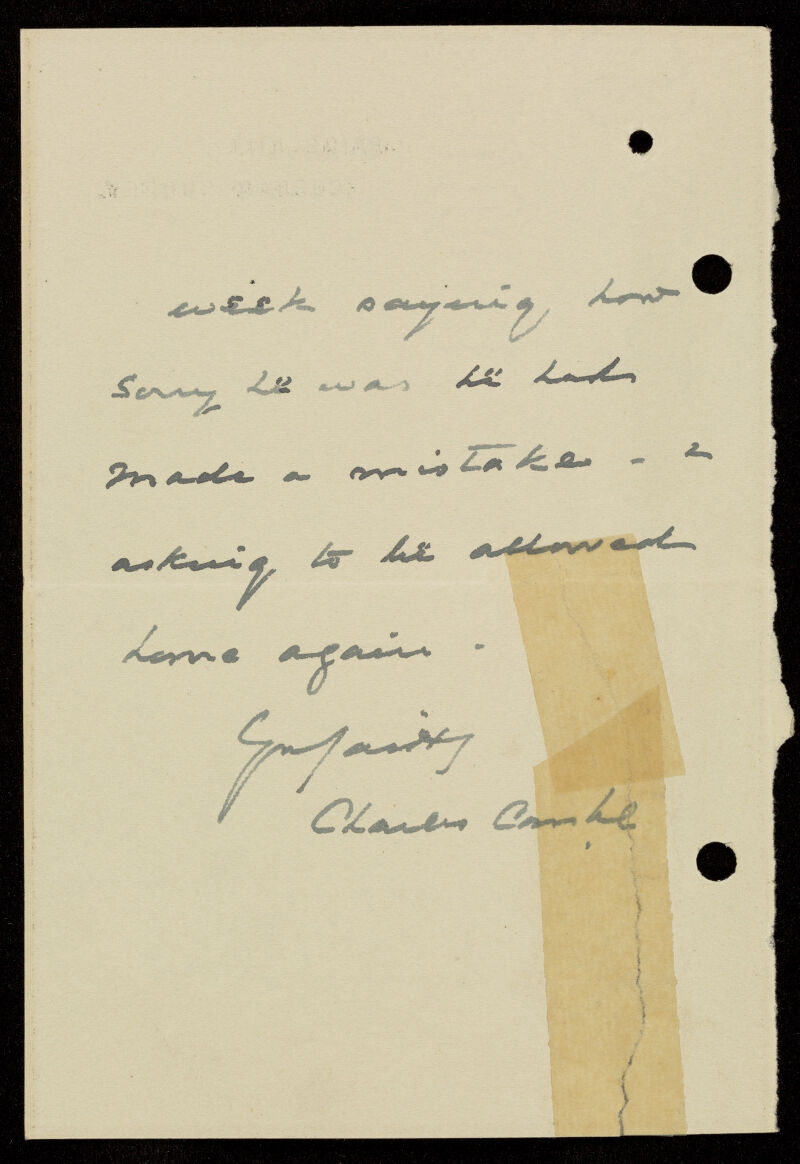 week saying how
Sorry he was he had
made a mistake - &
asking to be allowed
home again -
Yrs faithy
Charles